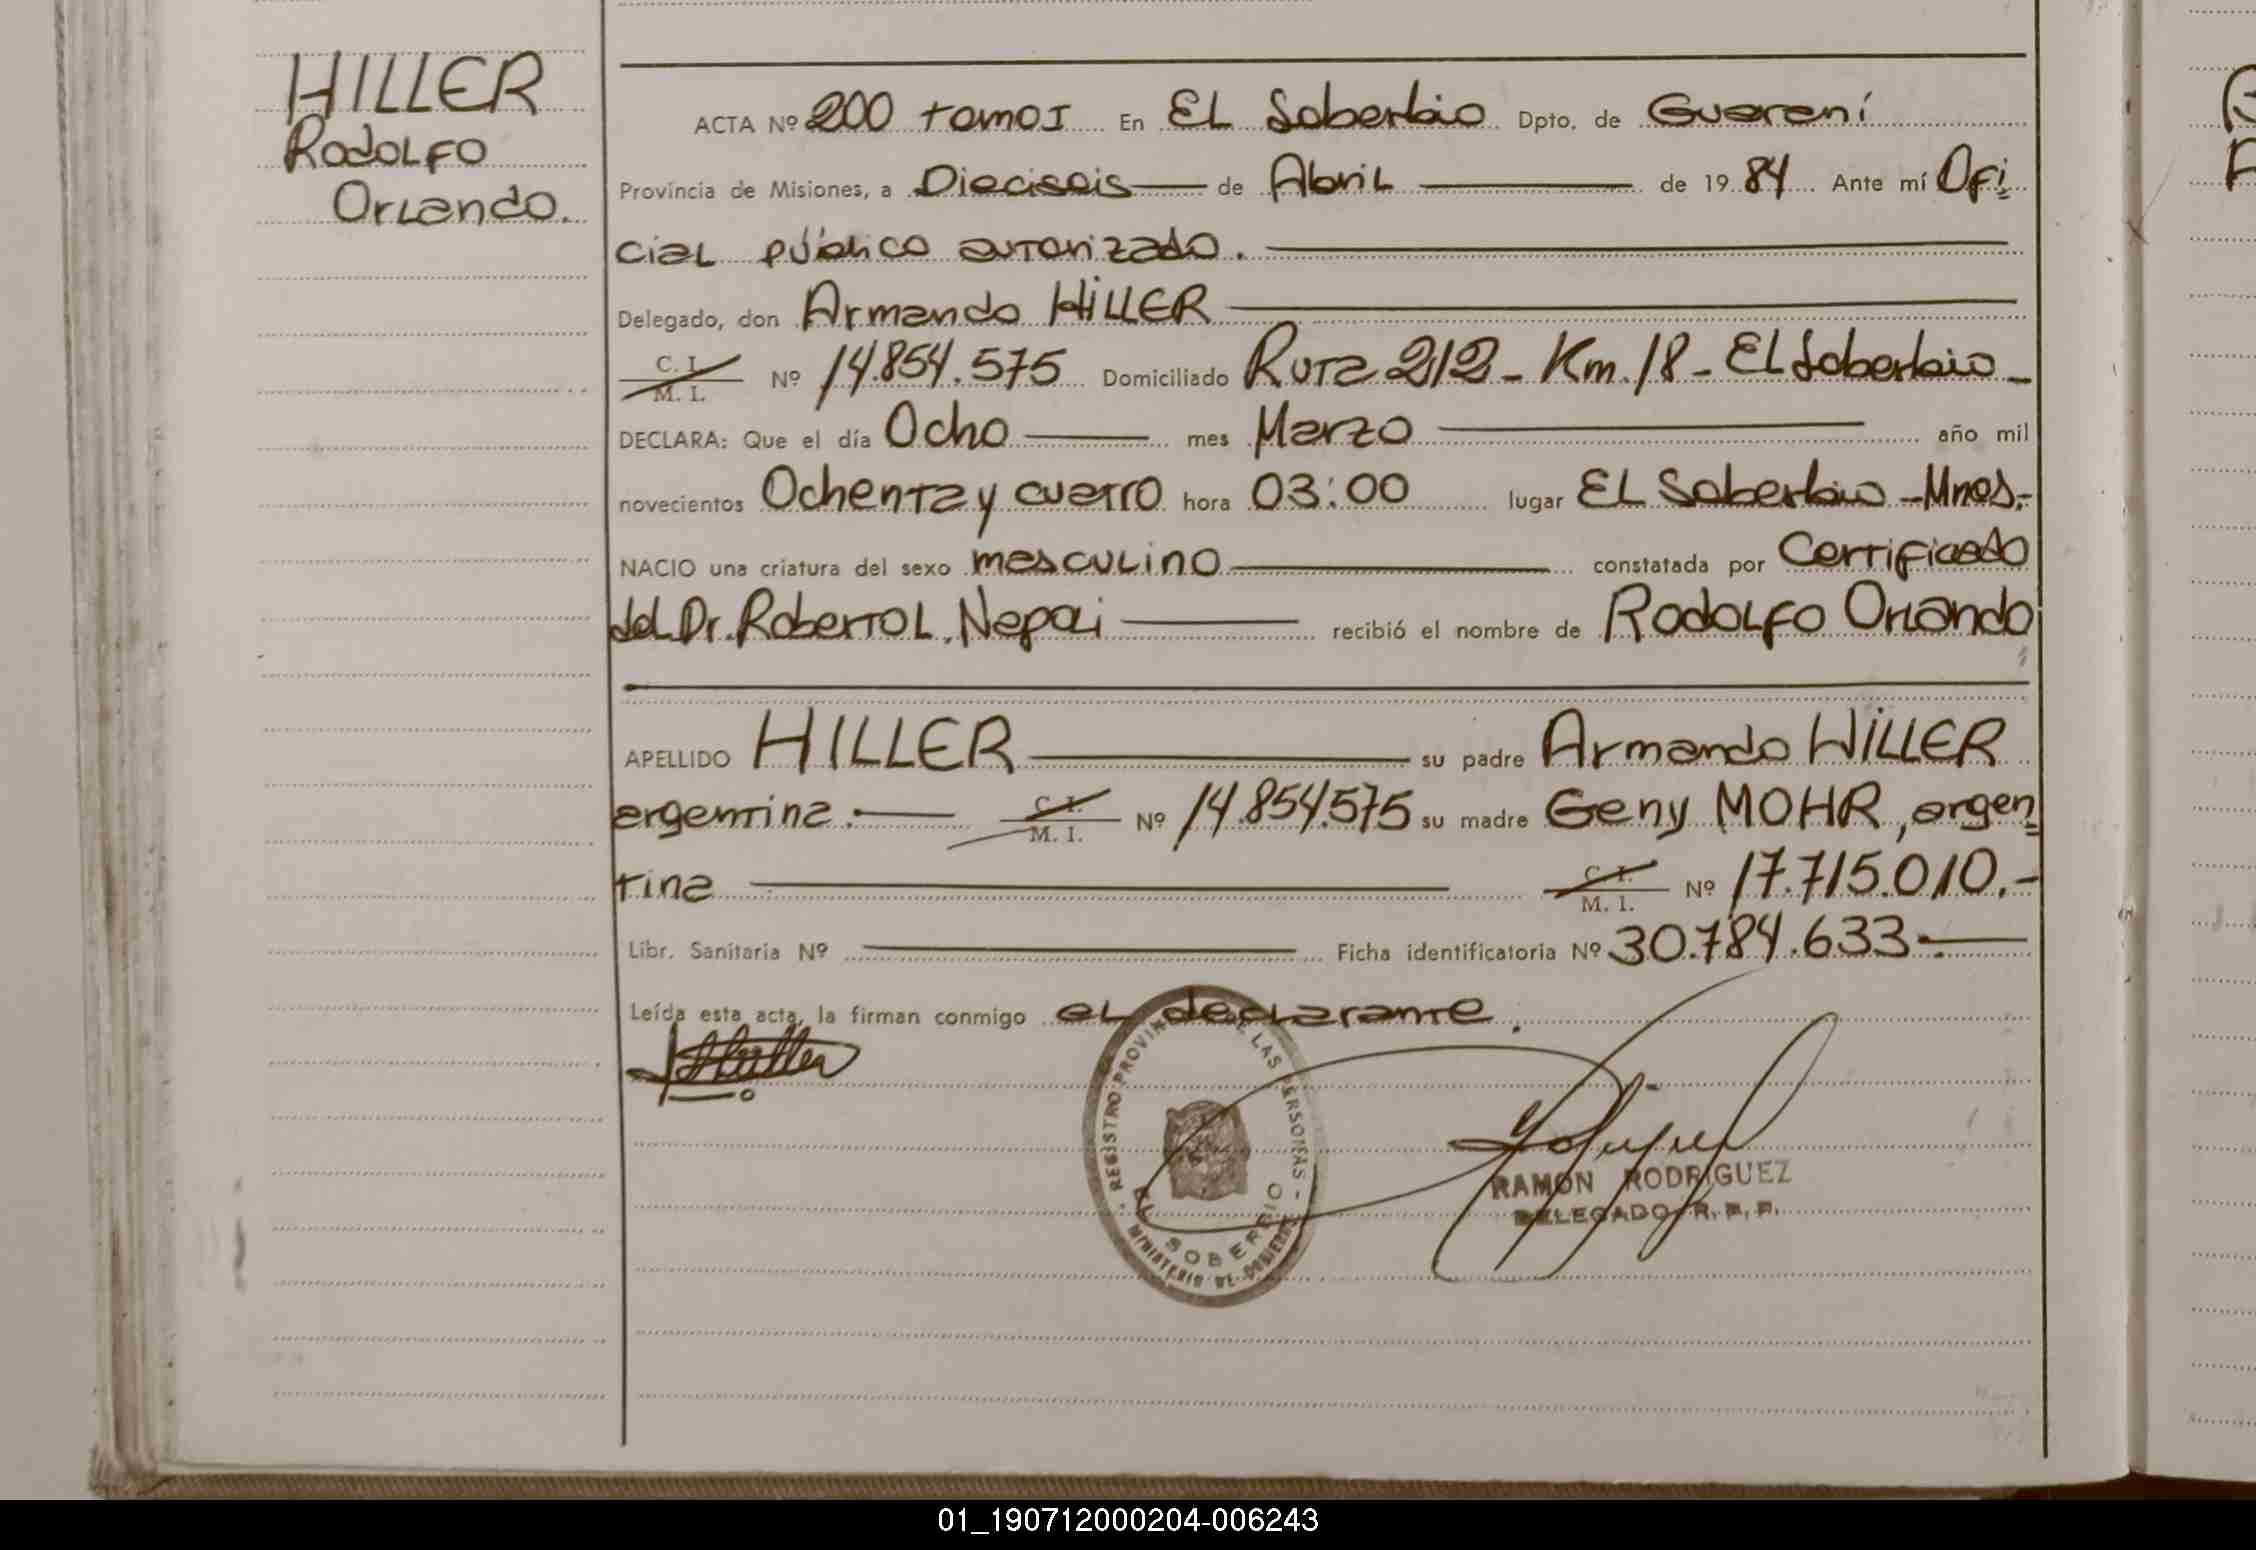 HILLER
Rodolfo
Orlando.
ACTA Nº 200 tomo I En El Soberbio Dpto. de Guaraní
Provincia de Misiones, a Dieciseis de Abril de 1984 Ante mí Ofi
cial público autorizado.
Delegado, don Armando HILLER
C. I.
M. I. Nº 14.854.575 Domiciliado Ruta 212 - Km. 18 - El Soberbio -
DECLARA: Que el día Ocho mes Marzo año mil
novecientos Ochenta y cuatro hora 03:00 lugar El Soberbio - Mnes.-
NACIO una criatura del sexo masculino constatada por Certificado
del Dr. Roberto L. recibió el nombre de Rodolfo Orlando
APELLIDO HILLER su padre Armando HILLER
argentina.- C. I.
M. I. Nº 14.854.575 su madre Geny MOHR, argen
tina C. I.
M. I. Nº 17.715.010.-
Libr. Sanitaria Nº Ficha identificatoria Nº 30.784.633.-
Leída esta acta, la firman conmigo el declarante.
REGISTRO PROVINCIAL DE LAS PERSONAS -
EL SOBERBIO
MINISTERIO DE GOBIERNO
RAMON RODRIGUEZ
DELEGADO R. P. P.
01_190712000204-006243